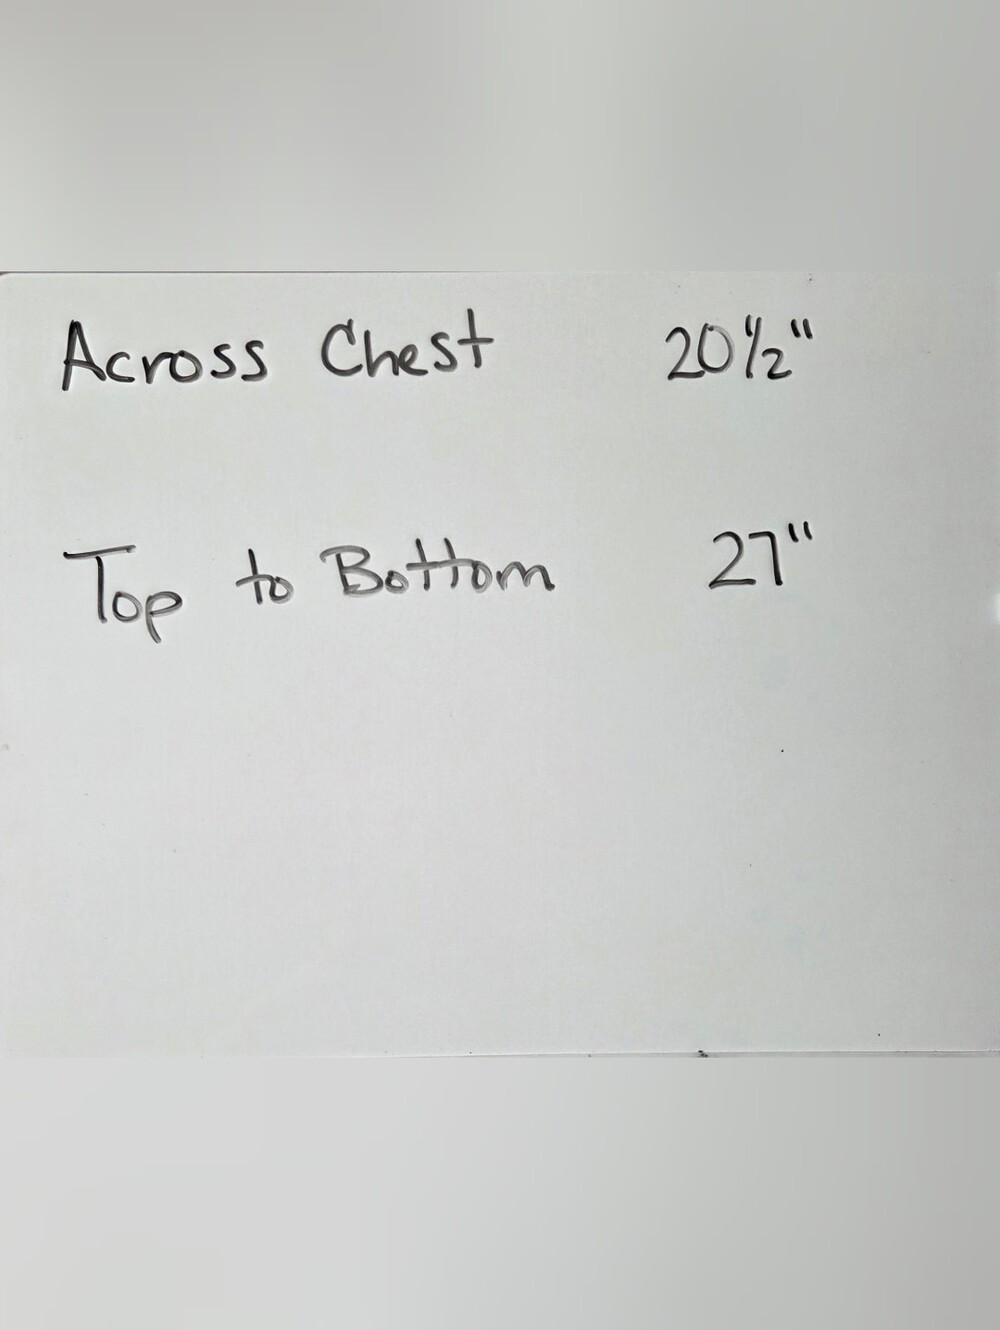 Across Chest 20½"
Top to Bottom 27"